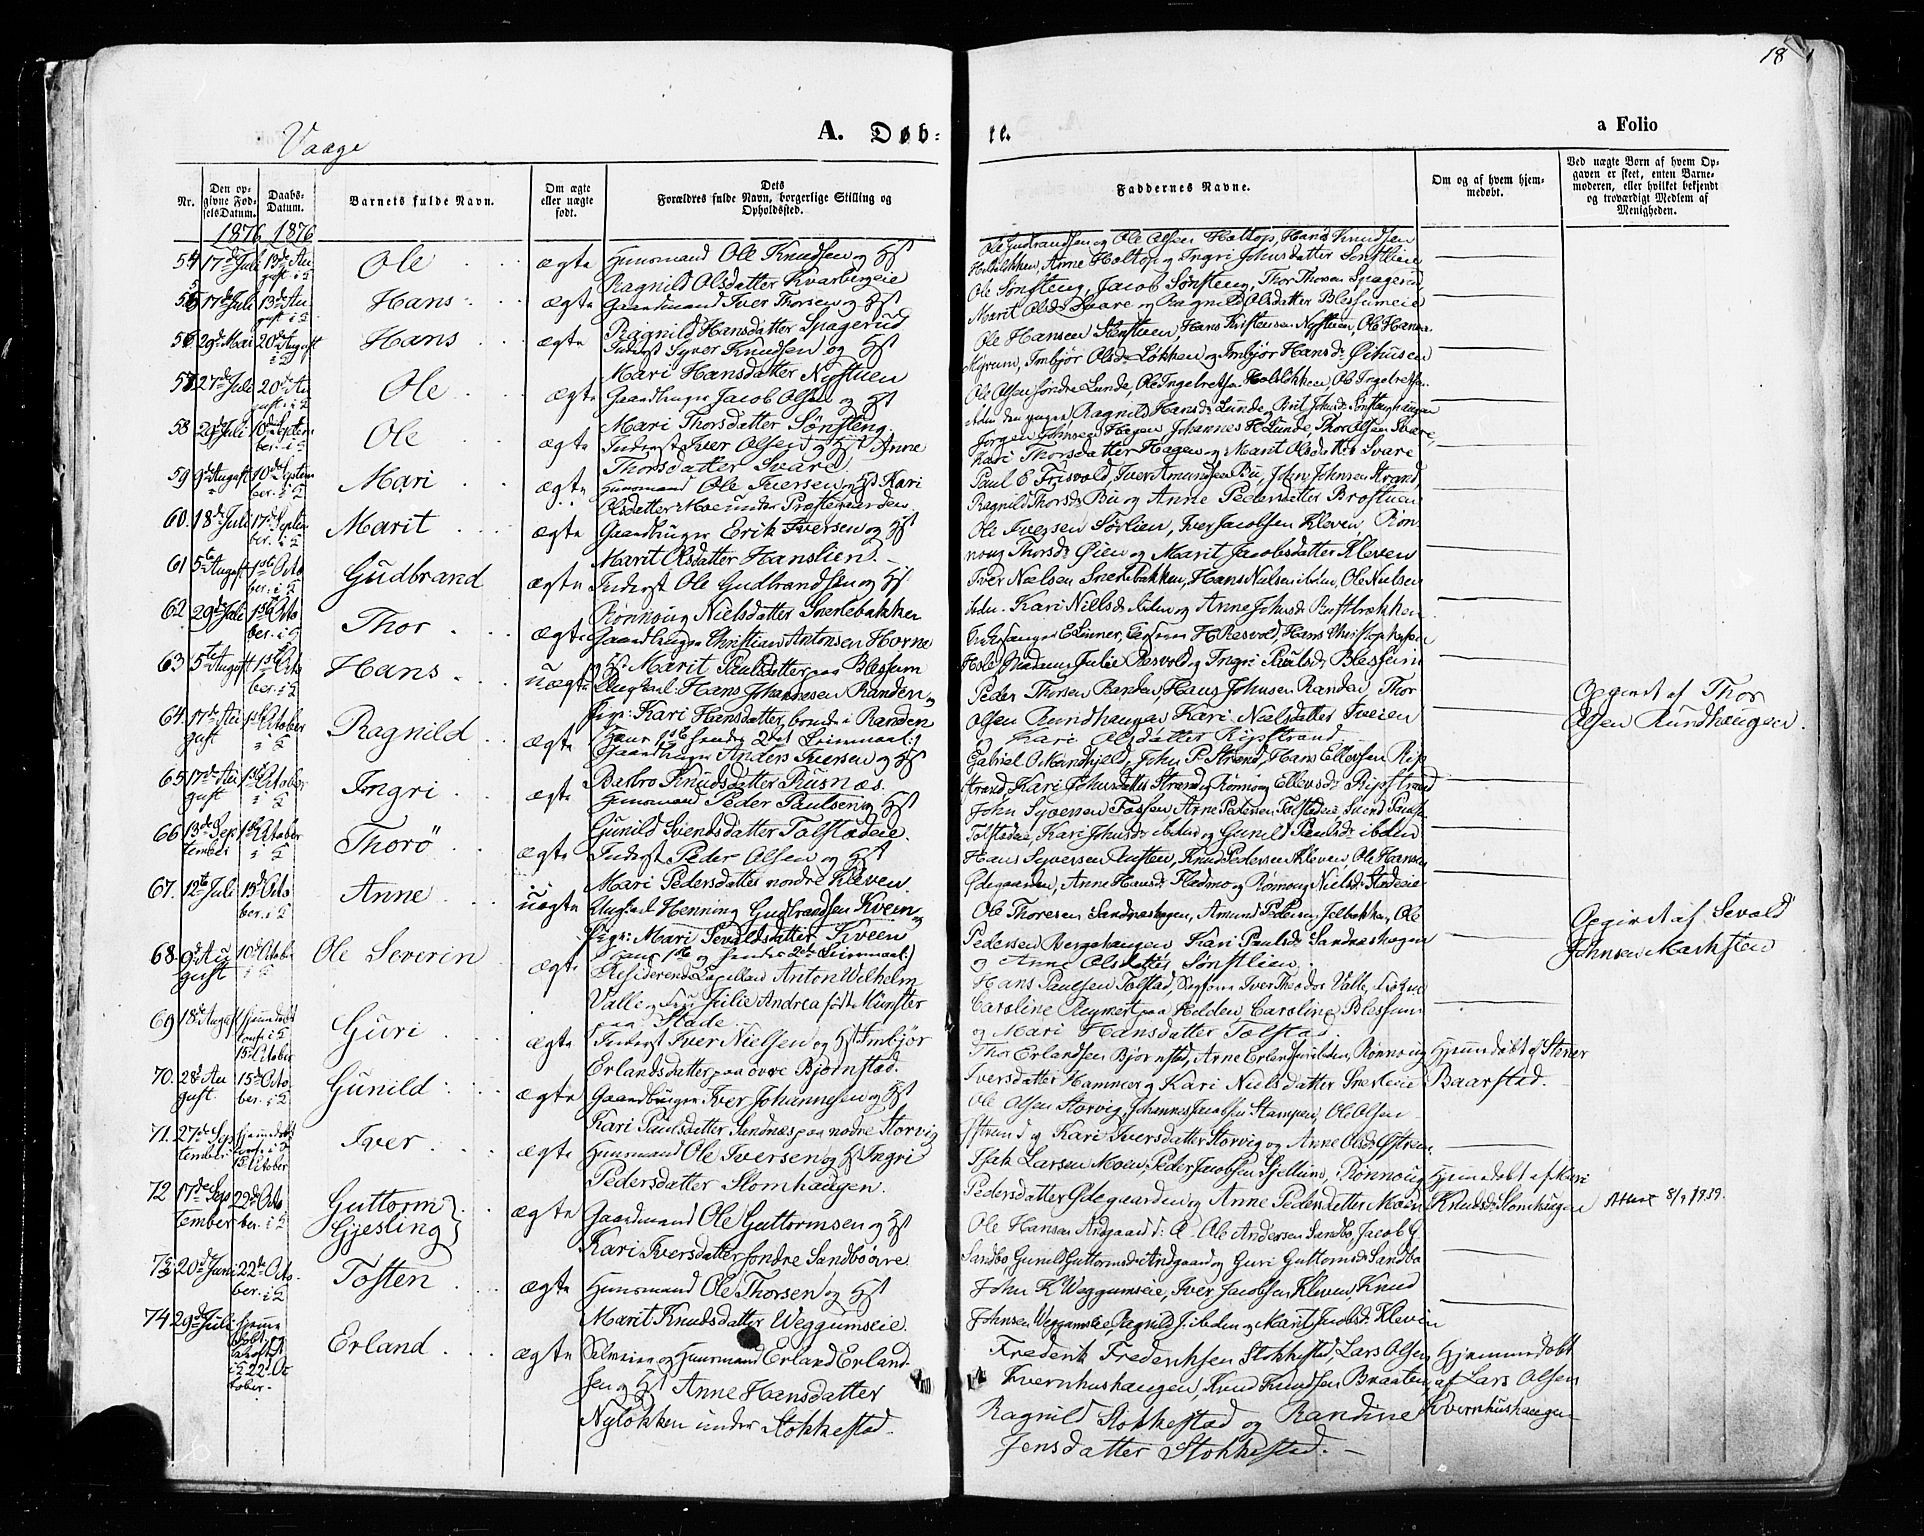 18
Vaage
A. Døb-
te.
a Folio
Nr.
Den opgivne FødselsDatum.
Daabs-Datum.
Barnets fulde Navn.
Om ægte eller uægte født.
Dets Forældres fulde Navn, borgerlige Stilling og Opholdssted.
Faddernes Navne.
Om og af hvem hjemmedøbt.
Ved uægte Børn af hvem Opgaven er skeet, enten Barnemoderen, eller hvilket bekjendt og troværdigt Medlem af Menigheden.
1876 1876
54 17de Juli 13de August i K Ole ægte Huusmand Ole Knudsen og Hst
Ragnild Olsdatter Kvarbergeie
Ole Gudbrandsen og Ole Olsen Holtop, Hans Knudsen
Anne Holtop og Ingri Johnsdatter Sønstlien
55 17de Juli 13de August Hans ægte Gaardmand Iver Thorsen og Hst
Ragnild Hansdatter Spagerud
Ole Sønsteng, Jacob Sønsteng, Thor Thorsen Spagerud
Marit Olsd: Svare og Ragnild Olsdatter Blessumeie
56 29de Mai 20de August Hans ægte Inderst Syver Knudsen og Hst
Mari Hansdatter Nystuen
Ole Hansen Stenstuen, Hans Kristensen Nystuen, Ole Hansen
Imbjør Olsd: Løkken og Imbjør Hansd: Øihusen
57 27de Juli 20de August Ole ægte Gaardbruger Jacob Olsen og Hst
Mari Thorsdatter Sønsteng
Ole Olsen søndre Lunde, Ole Ingebretsen
Ragnild Hansd: Lunde
58 29de Juli 10de September Ole ægte Inderst Iver Olsen og Hst Anne
Thorsdatter Svare
Jørgen Johnsen Hagen, Johannes H Lunde, Thor Olsen Svare,
Kari Thorsdatter Hagen og Marit Olsdatter Svare
59 9de August 10de September Mari ægte Huusmand Ole Iversen og Hst Kari
Olsdatter Moe under Præstegaarden
Paul E Frisvold, Iver Amundsen Bu, John Johnsen Strand,
Ragnild Thorsd: Bu og Anne Pedersdatter Brostuen
60. 18de Juli 17de September Marit ægte Gaardbruger Erik Iversen og Hst
Marit Olsdatter Hanslien.
Ole Iversen Sørlien, Iver Jacobsen Kleven Røn-
noug Thorsd: Øien og Marit Jacobsdatter Kleven
61 5te August 1ste October Gudbrand ægte Inderst Ole Gudbrandsen og Hst
Rønnoug Nielsdatter Snerlebakken
Iver Nielsen Snerlebakken, Hans Nielsen ibiden, Ole Nielsen
ibiden. Kari Nielsd: ibiden og Anne Johnsd:
62. 29de Juli 1ste October Thor ægte Gaardbruger Christian Antonsen Horne
og Hst Marit Paulsdatter paa Blessum
Hans Christophersen
Hole, Madame Julie Resvold og Ingri Paulsd: Blessum
63 5te August 1ste October Hans uægte Ungkarl: Hans Johannesen Randen og
Pige: Kari Hansdatter, boende i Randen
(Hans 1ste hendes 2det Leiermaal.)
Peder Thorsen Randen, Hans Johnsen Randen, Thor
Olsen Rundhaugen, Kari Nielsdatter Tveien
Kari Olsdatter Ripstrand.
Opgivet af Thor
Olsen Rundhaugen.
64. 17de August 1ste October Ragnild ægte Gaardbruger Anders Iversen og Hst
Barbro Knudsdatter Rusnæs.
Gabriel O Mandhjeld, John P. Strand, Hans Ellevsen Rip-
strand, Kari Johnsdatter Strand og Rønnoug Ellevsd: Ripstrand
65 17de August 1ste October Ingri ægte Huusmand Peder Paulsen og Hst
Gunild Svendsdatter Tolstadeie
John Syversen Fossen, Arne Pedersen Tolstadeie, Svend Pauls.
Tolstadeie, Kari Johnsd: ibiden og Gunild Paulsd: ibiden
66 13de September 1ste October Thorø ægte Inderst Peder Olsen og Hst
Mari Pedersdatter nordre Kleven.
Hans Syversen, Knud Pedersen Kleven, Ole Hansen
Ødegaarden, Anne Hansd: Flatmo og Rønnoug Nielsd:
67. 12te Juli 15de October Anne uægte Ungkarl Henning Gudbrandsen Kveen og
Pige: Mari Sevaldsdatter Kveen
(Hans 1ste og hendes 2det Leiermaal)
Ole Thoresen Sandneshagen, Amund Pedersen Selbakken, Ole
Pedersen Bergehaugen, Kari Paulsd: Sandneshagen
og Anne Olsdatter Sønstlien.
Opgivet af Sevald
Johnsen Markstien
68. 9de August 10de October Ole Severin ægte Residerende Capellan Anton Wilhelm
Valle og Fru Julie Andrea født Münster
paa Stade.
Hans Paulsen Tolstad, Iver Theodor Valle, Frøken
Caroline Reymert paa Helden, Caroline Blessum
og Mari Hansdatter Tolstad.
69 18de August Hjemmedøbt conf: i K 15de October Guri ægte Inderst Iver Nielsen og Hst Imbjør
Erlandsdatter paa øvre Bjørnstad.
Thor Erlandsen Bjørnstad, Arne Erlandsen ibiden, Rønnoug
Iversdatter Hammer og Kari Nielsdatter Snerleeie
Hjemmedøbt af Stener
Baarstad.
70. 28de August 15de October Gunild ægte Gaardbruger Iver Johannesen og Hst
Kari Paulsdatter Sandnæs paa nedre Storvig
Ole Olsen Storvig, Johannes Jacobsen Stampen, Ole Olsen
Kari Iversdatter Storvig og Anne Olsd:
71. 27de September Hjemmedøbt conf i K 15de October Iver ægte Huusmand Ole Iversen og Hst Ingri
Pedersdatter Slomhaugen.
Isak Larsen Moen, Peder Jacobsen Sjellum, Rønnoug
Pedersdatter Ødegaarden og Anne Pedersdatter Moen
Hjemmedøbt af Mari
Knudsd: Slomhaugen
Attest 8/9 1939.
72 17de September 22de October Guttorm Gjesling ægte Gaardmand Ole Guttormsen og Hst
Kari Iversdatter søndre Sandboøvre
Ole Hansen Andgaard, Ole Andersen Sandbo, Jacob G.
Sandbo, Gunild Guttormsd: Andgaard og Guri Guttormsd: Sandbo
73 20de Juni 22de October i K Tosten ægte Huusmand Ole Thorsen og Hst
Marit Knudsdatter Veggumseie.
John K Veggumseie, Iver Jacobsen Kleven, Knud
Johnsen Veggumseie, Ragnild J. ibiden og Marit Jacobsd: Kleven
74. 29de Juli Hjemmedøbt og i K 22 October Erland ægte Selveier og Huusmand Erland Erland-
sen og Hst Anne Hansdatter
Nyløkken under Stokkestad.
Frederik Frederiksen Stokkestad, Lars Olsen
Kvernhushaugen, Knud Knudsen Braaten,
Ragnild Stokkestad og Randine
Jensdatter Stokkestad.
Hjemmedøbt
af Lars Olsen
Kvernhushaugen